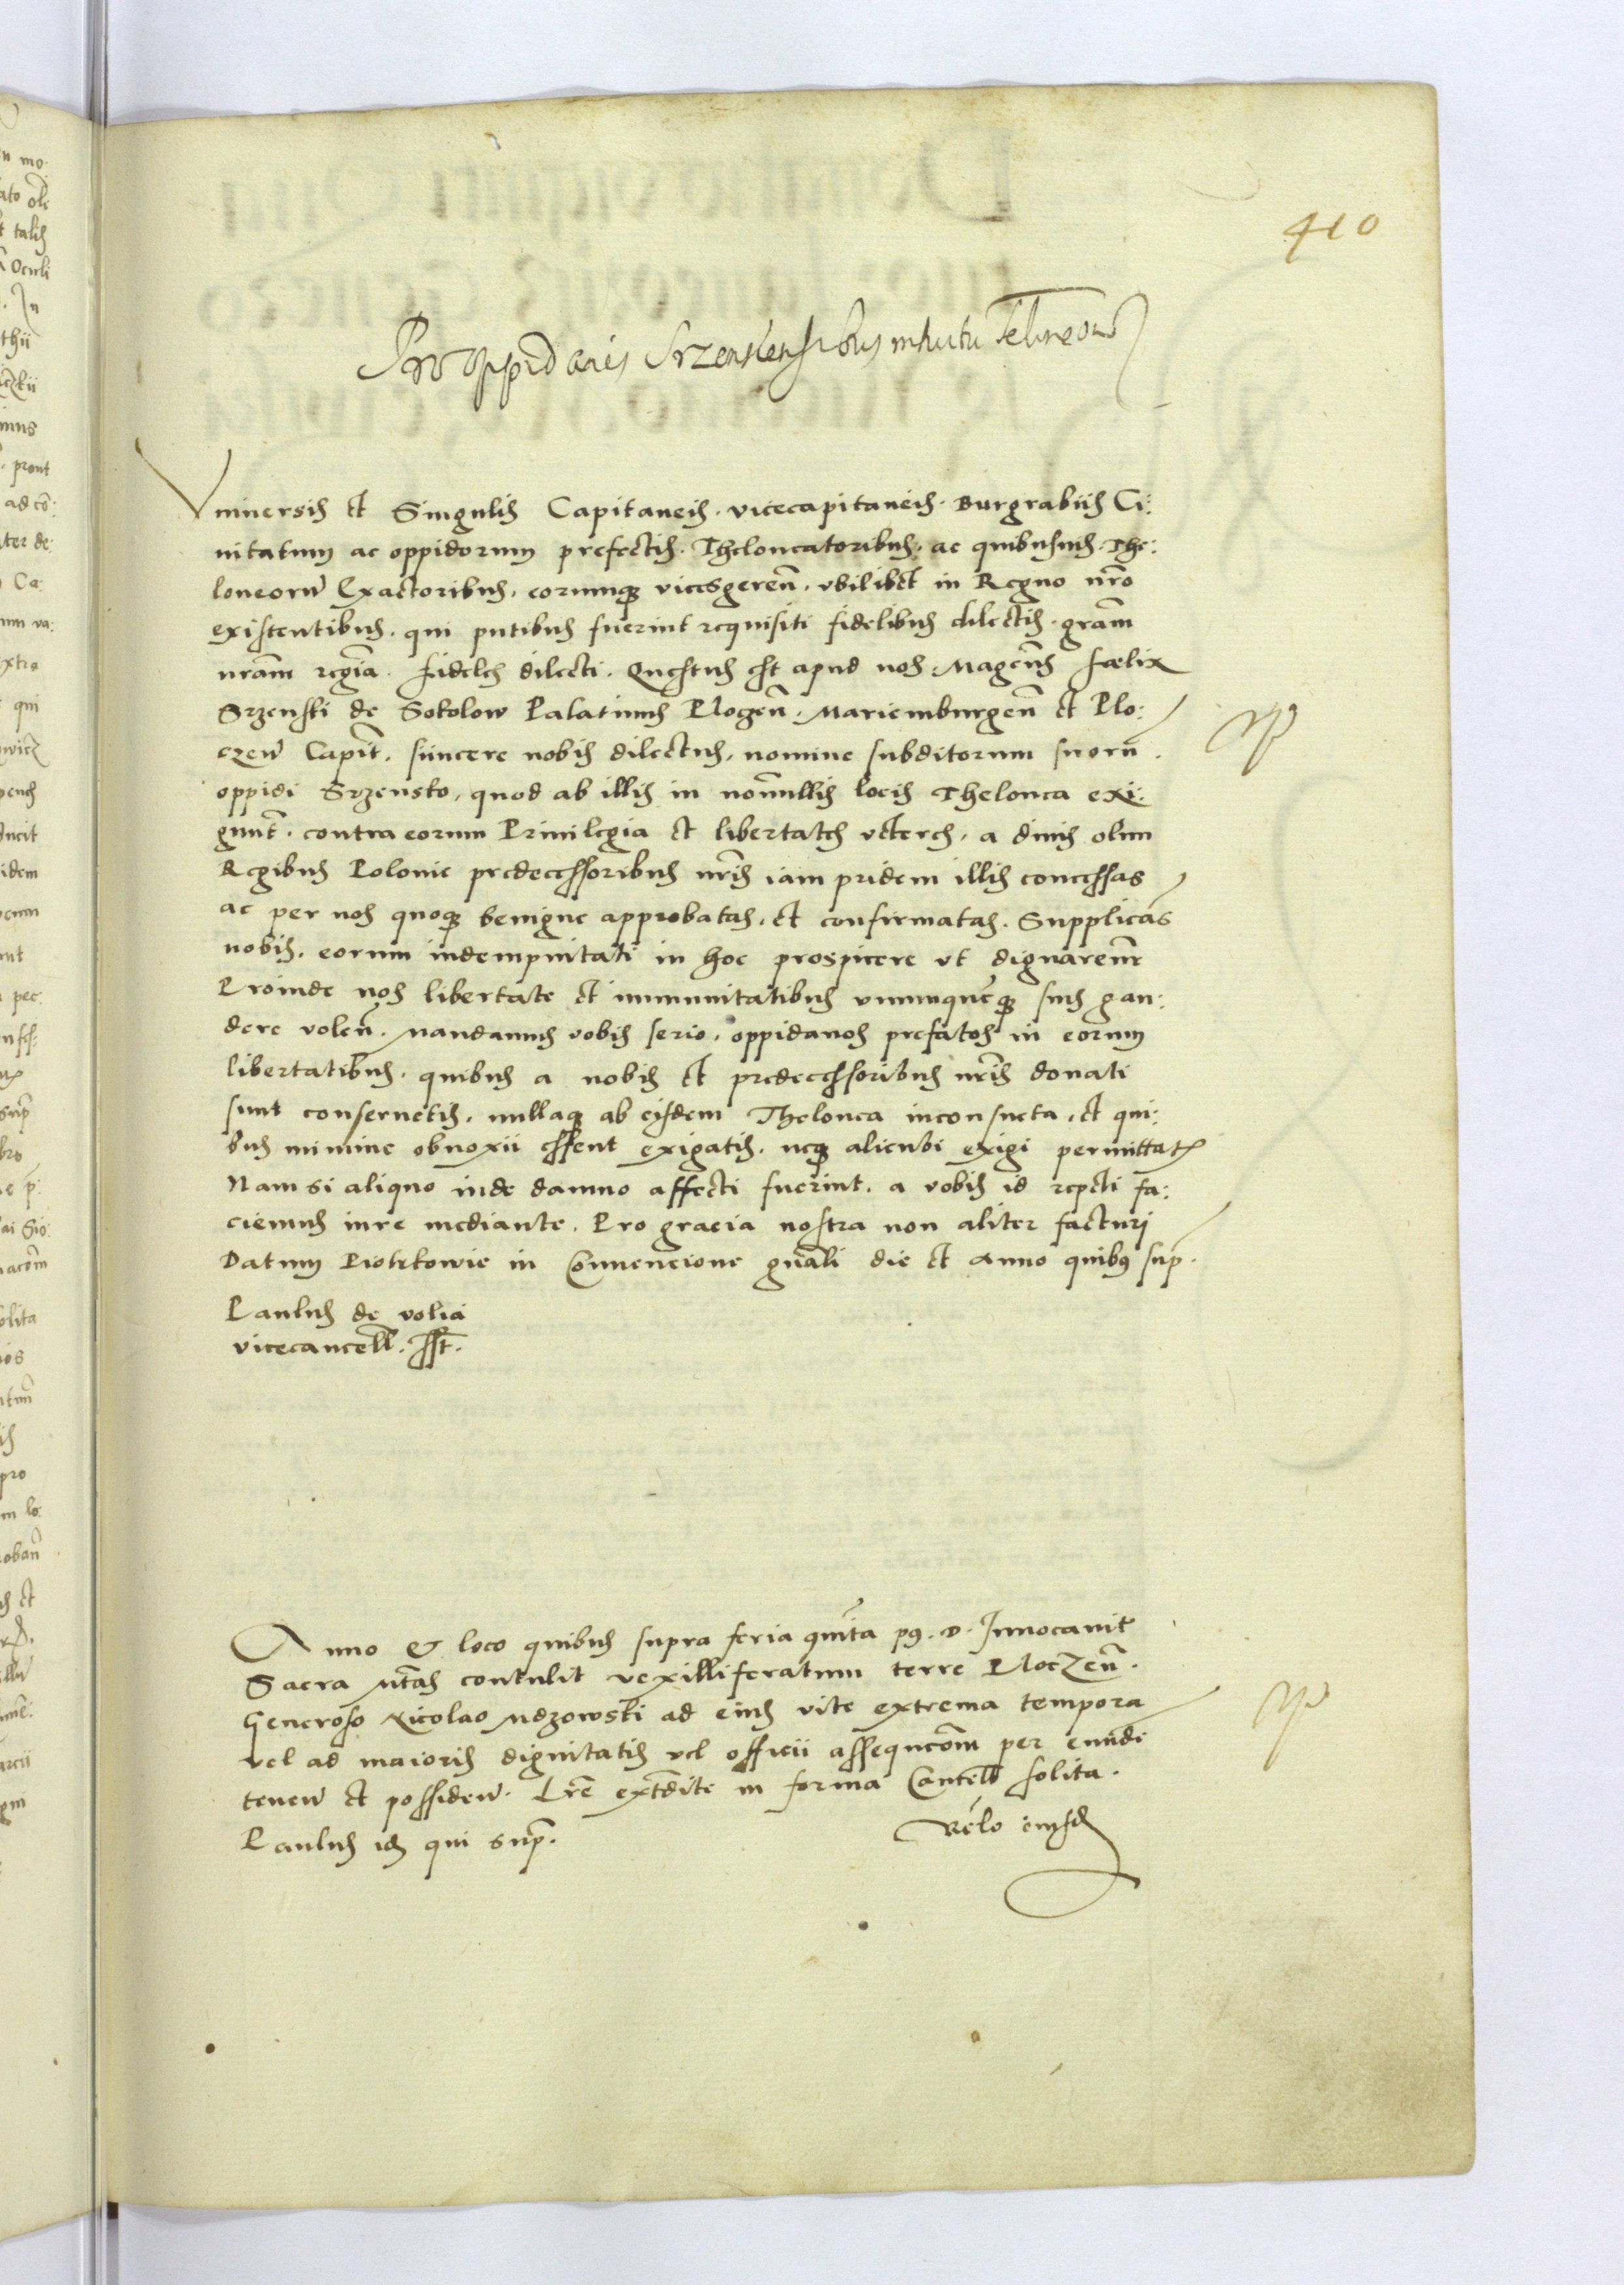 410
Pro oppidanis Srzensiensibus intuitu Teloneorum
Vniuersis et Singulis Capitaneis. vicecapitaneis. Burgrabiis Ci:
uitatum ac oppidorum prefectis. Theloneatoribus. ac quibusuis The:
loneorū Exactoribus. eorumqꝫ vicesgereñ. vbilibet in Regno nr̄o
existentibus. qui pñtibus fuerint requisiti fidelibus dilectis. grām
nrām regiā. fideles dilecti. Questus est apud nos Magcus̄ Fælix
Srzenski de Sokolow Palatinus Plogeñ. Mariemburgeñ et Plo:
czeñ Capit̄. sincere nobis dilectus. nomine subditorum suorū.
oppidi Srzensko. quod ab illis in nōnullis locis Thelonea exi:
gunt̄. contra eorum Priuilegia et libertates veteres. a diuis olim
Regibus Polonie predecessoribus nr̄is iam pridem illis concessas
ac per nos quoqꝫ benigne approbatas. et confirmatas. Supplicās
nobis. eorum indempnitati in hoc prospicere vt dignaremr̄
Proinde nos libertate et immunitatibus vnumquēqꝫ suis gau:
dere voleñ. Mandamus vobis serio. oppidanos prefatos in eorum
libertatibus. quibus a nobis et predecessoribus nr̄is donati
sunt conseruetis. nullaqꝫ ab eisdem Thelonea inconsueta. et qui:
bus minime obnoxii essent exigatis. neqꝫ alicubi exigi permittatꝭ
Nam si aliquo inde damno affecti fuerint. a vobis id repeti fa:
ciemus iure mediante. Pro gracia nostra non aliter facturi
Datum Piotrkowie in Conuencione gn̄ali die et Anno quibꝰ sup̄.
Paulus de volia
vicecancell̄. sst̄.
Anno & loco quibus supra feria quīta pꝰ. D. Inuocauit
Sacra Mtās contulit vexilliferatum terre Ploczeñ.
Generoso Nicolao Mdzowski ad eius vite extrema tempora
vel ad maioris dignitatis vel officii assequcōm per eundē
teneñ et possideñ. Lrē extradite in forma Cancell̄ solita.
Paulus idē qui sup̄.
Rēlo eiusdē